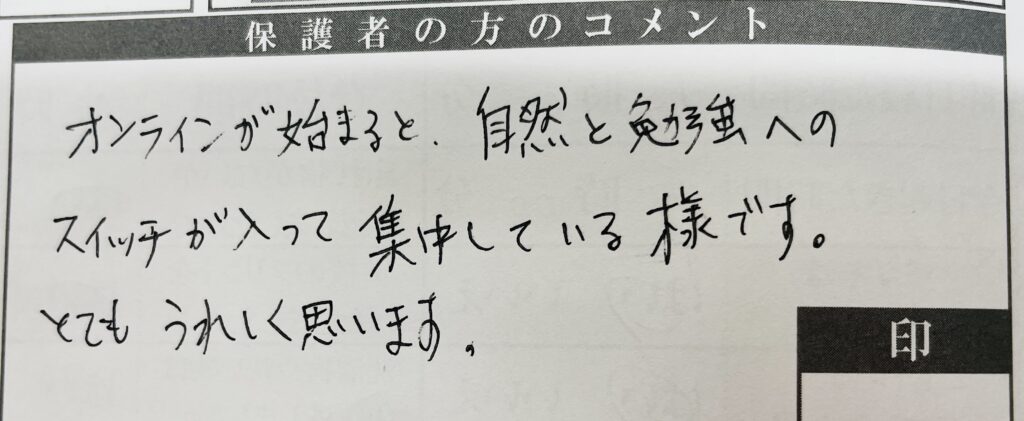 保護者の方のコメント
オンラインが始まると、自然と勉強への
スイッチが入って集中している様です。
とてもうれしく思います。
印